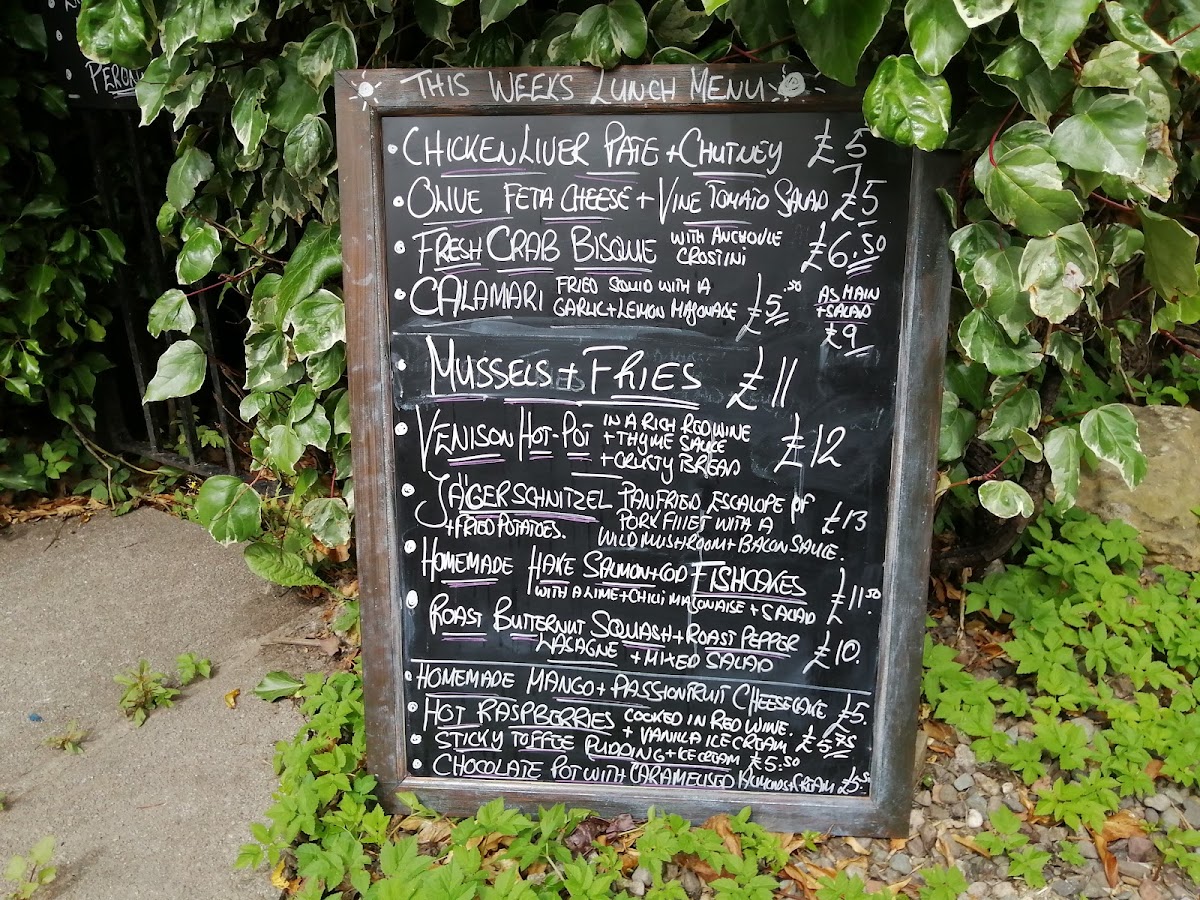 PERONI
THIS WEEKS LUNCH MENU
CHICKEN LIVER PATE + CHUTNEY £5
OLIVE FETA CHEESE + VINE TOMATO SALAD £5
FRESH CRAB BISQUE WITH ANCHOVIE £6.50
CROSTINI
CALAMARI FRIED SQUID WITH A £5.50 AS MAIN
GARLIC + LEMON MAYONAISE + SALAD
£9
MUSSELS + FRIES £11
VENISON HOT-POT IN A RICH RED WINE £12
+ THYME SAUCE
+ CRUSTY BREAD
JÄGER SCHNITZEL PANFRIED ESCALOPE OF £13
+ FRIED POTATOES. PORK FILLET WITH A
WILD MUSHROOM + BACON SAUCE.
HOMEMADE HAKE SALMON + COD FISHCAKES £11.50
WITH A LIME + CHILLI MAYONAISE + SALAD
ROAST BUTTERNUT SQUASH + ROAST PEPPER £10.
LASAGNE + MIXED SALAD
HOMEMADE MANGO + PASSIONFRUIT CHEESECAKE £5.
HOT RASPBERRIES COOKED IN RED WINE. £5.75
+ VANILLA ICE CREAM
STICKY TOFFEE PUDDING + ICE CREAM £5.50
CHOCOLATE POT WITH CARAMELISED ALMONDS + CREAM £5.50